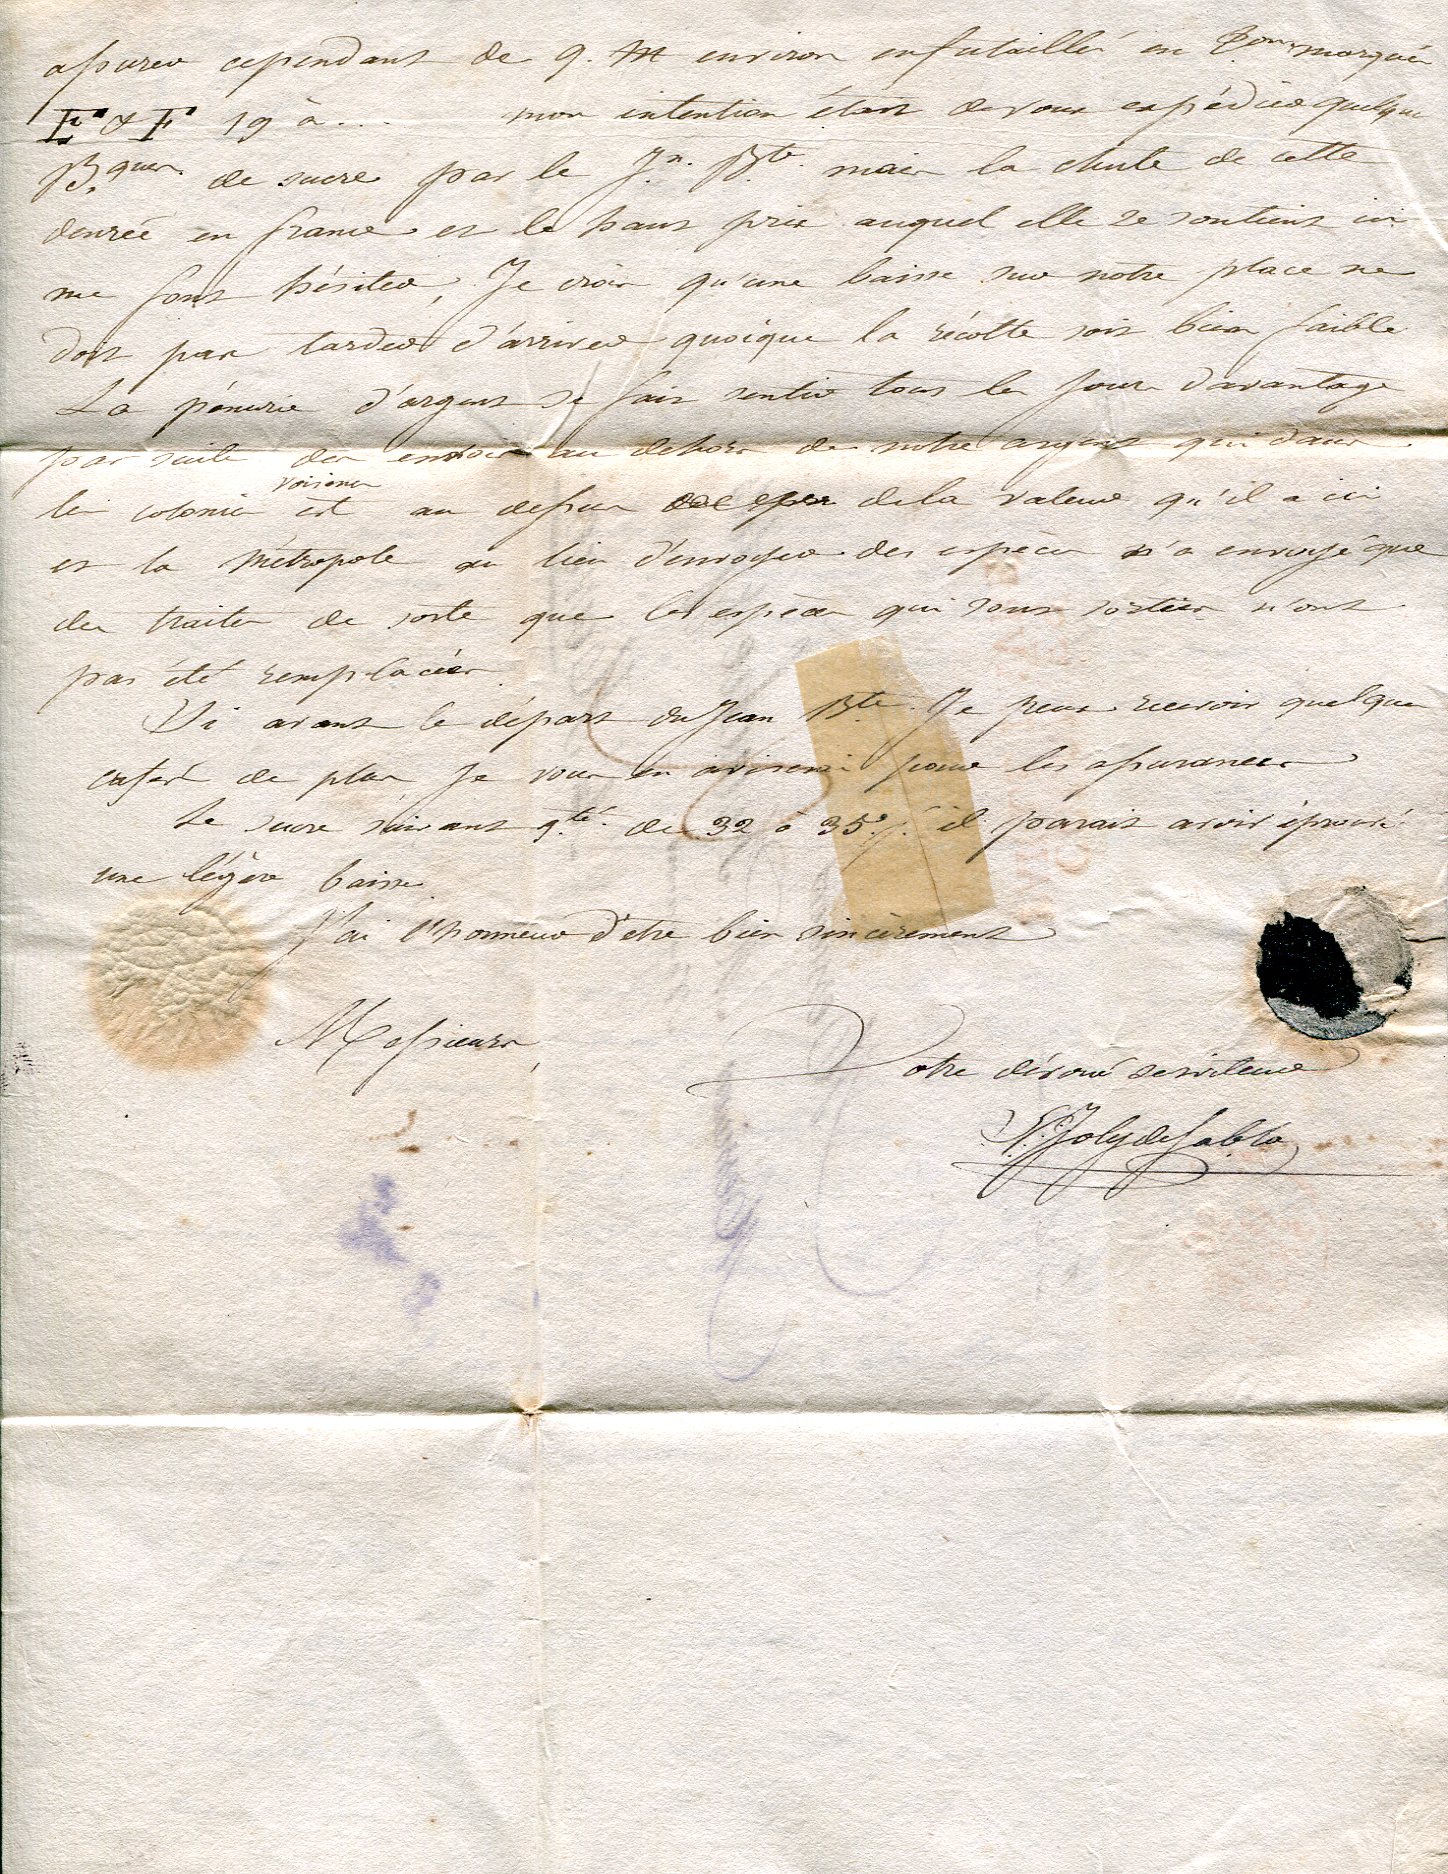 assurer cependant de 9. M environ enfutaillé en Bons marqués
F & F 19 à . . . mon intention étant de vous expédier quelque
Bques. de sucre par le Jn. Bte. mais la chute de cette
denrée en france et le haut prix auquel elle se soutient ici
me font hésiter, Je crois qu'une baisse sur notre place ne
doit pas tarder d'arriver quoique la récolte soit bien faible
La pénurie d'argent se fait sentir tous les jours davantage
par suite des envois au dehors de notre argent qui dans
les colonies voisines est au dessus de la valeur qu'il a ici
et la Métropole au lieu d'envoyer des espèces n'a envoyé que
des traites de sorte que les espèces qui sont sorties n'ont
pas été remplacées
Si avant le départ du Jean Bte. Je peux recevoir quelque
cafés de plus Je vous en aviserai pour les assurances
Le sucre suivant qté. de 32 à 35 f. il parait avoir éprouvé
une légère baisse
J'ai l'honneur d'etre bien sincèrement
Messieurs,
Votre dévoué serviteur
N. Joly de Sabla